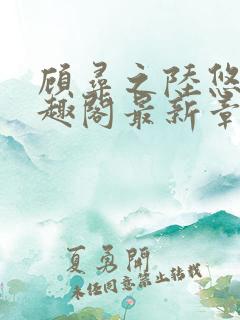 顾寻之陆悠
趣阁最新章
夏勇闹
未经同意禁止转载